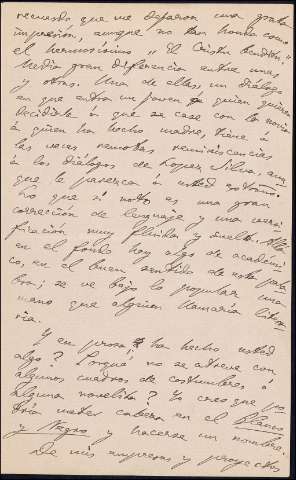 recuerdo que me dejaron una grata
impresión, aunque no tan honda como
el hermosísimo "El Cristu benditu".
Media gran diferencia entre unas
y otras. Una de ellas, un diálogo
en que entra un joven á quien quieren
decidirle á que se case con la novia
á quien ha hecho madre, tiene á
las veces remotas reminiscencias
á los diálogos de Lopez Silva, aun-
que le parezca á usted extraño.
Lo que sí noto es una gran
corrección de lenguaje y una versi-
ficación muy fluida y suelta. Allá
en el fondo hay algo de académi-
co, en el buen sentido de esta pala-
bra; se ve bajo lo popular una
mano que alguien llamaría litera-
ria.
Y en prosa, ¿ha hecho usted
algo? ¿Porqué no se atreve con
algunos cuadros de costumbres ó
alguna novelita? Yo creo que po-
dría meter cabeza en el Blanco
y Negro y hacerse un nombre.
De mis empresas y proyectos